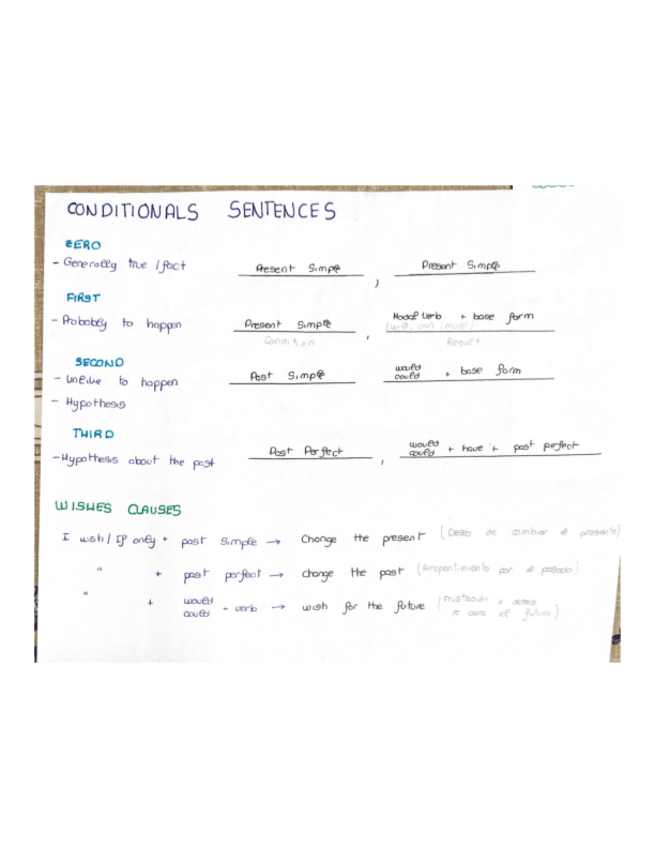 CONDITIONALS SENTENCES
ZERO
- Generally true / fact Present Simple , Present Simple
FIRST
- Probably to happen Present Simple , Modal Verb + base form
(will, can, must)
Condition Result
SECOND
- Unlike to happen Past Simple would could + base form
- Hypothesis
THIRD
- Hypothesis about the past Past Perfect , would could + have + past perfect
WISHES CLAUSES
I wish / If only + past simple → Change the present (Deseo de cambiar el presente)
" + past perfect → change the past (Arrepentimiento por el pasado)
" + would could + verb → wish for the future (frustración o deseo de cara al futuro)